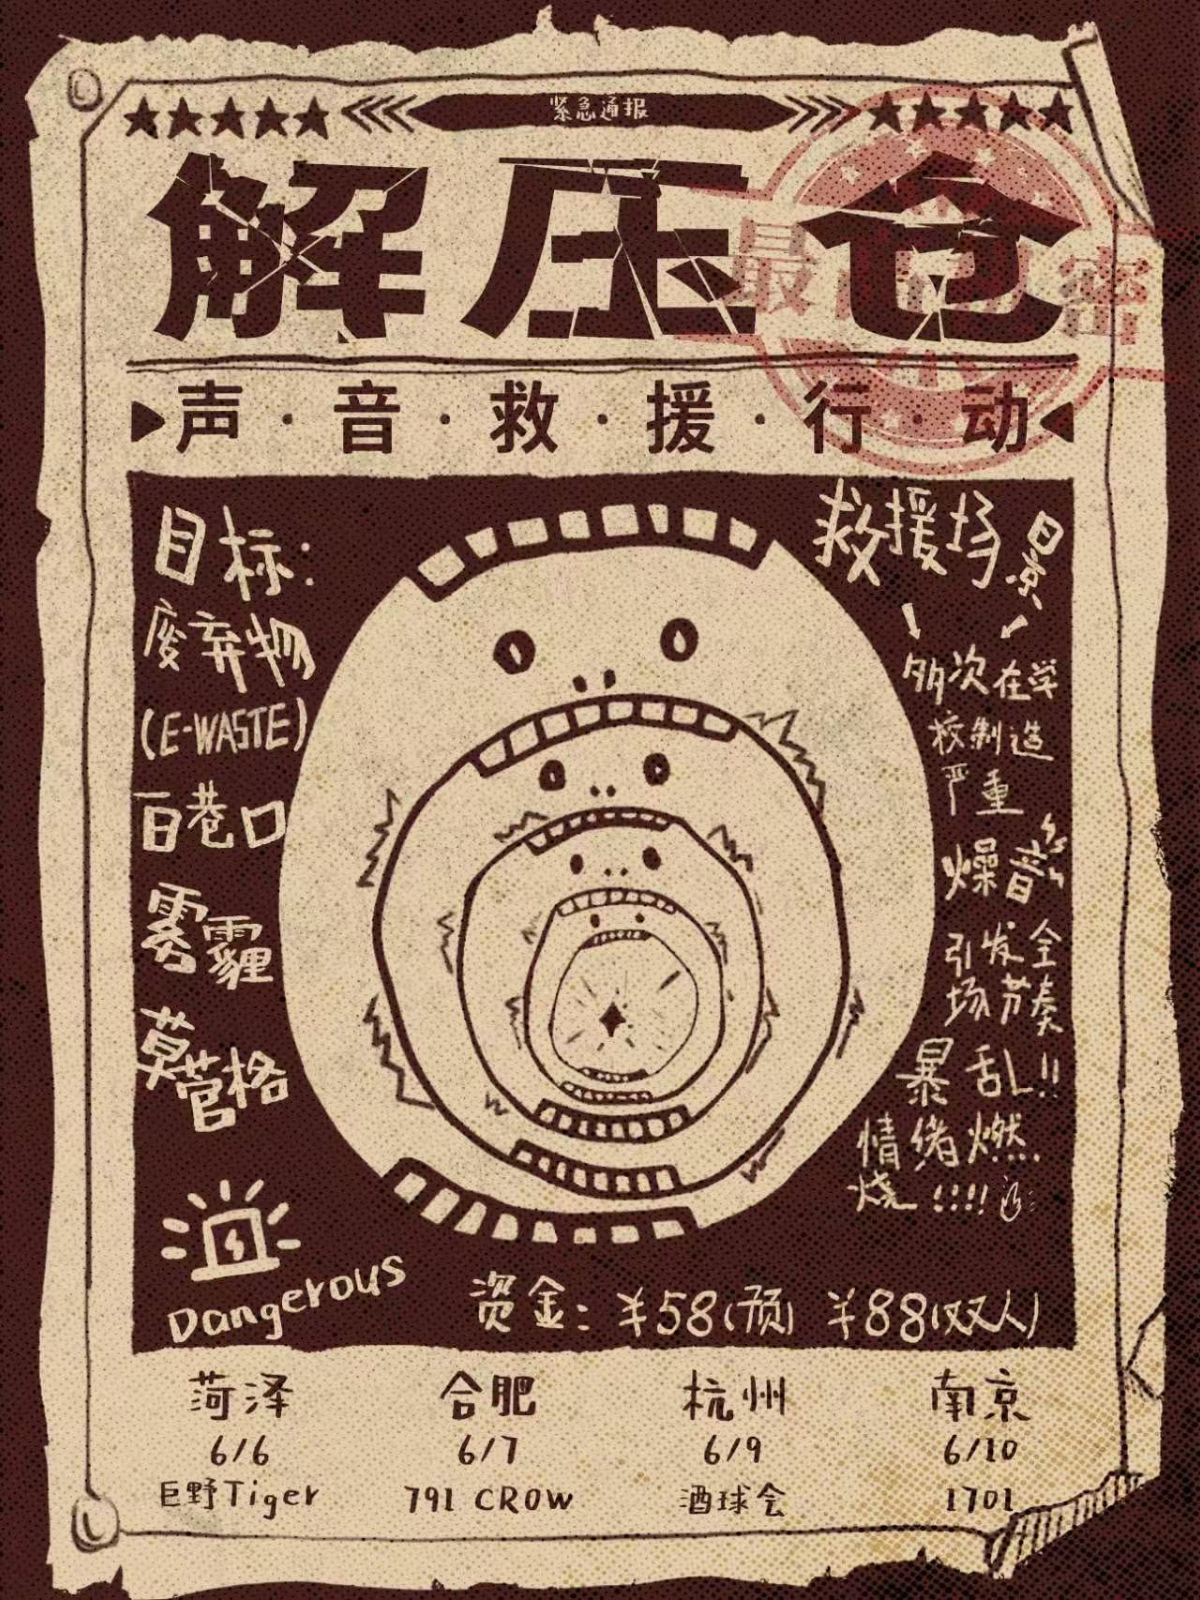 紧急通报
解压仓
最 密
声·音·救·援·行·动
目标:
废弃物
(E-WASTE)
百巷口
雾霾
莫菅格
Dangerous
救援场景:
多次在学
校制造
严重
燥音
引发全
场节奏
暴乱!!
情绪燃
烧!!!!
资金:¥58(预) ¥88(双人)
菏泽
6/6
巨野Tiger
合肥
6/7
791 CROW
杭州
6/9
酒球会
南京
6/10
1701